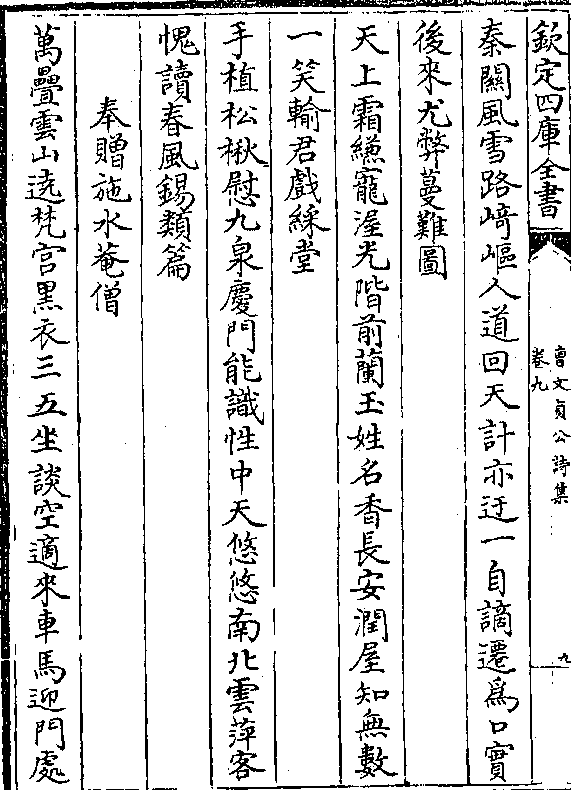 欽定四庫全書
曹文貞公詩集
卷九
九
秦關風雪路﨑嶇人道回天計亦迂一自謫遷爲口實
後來尤弊蔓難圖
天上霜縑寵渥光階前蘭玉姓名香長安潤屋知無數
一笑輸君戲綵堂
手植松楸慰九泉慶門能識性中天悠悠南北雲萍客
愧讀春風錫類篇
奉贈施水菴僧
萬疊雲山遶梵宫黒衣三五坐談空適來車馬迎門處